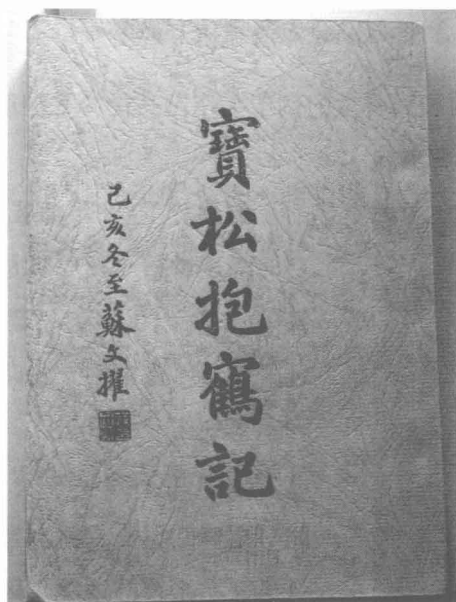 寶松抱鶴記
己亥冬至蘇文擢